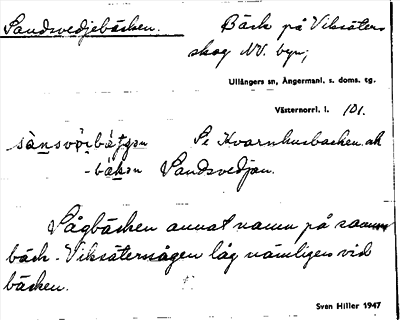 Sandsvedjebäcken.
Bäck på Viksäters
skog NV. byn;
Ullångers sn, Ångermanl. s. doms. tg.
Västernorrl. l. 101.
Se Kvarnhusbacken och
Sandsvedjan.
Sågbäcken annat namn på samma
bäck. Viksäterssågen låg nämligen vid
bäcken.
Sven Hiller 1947